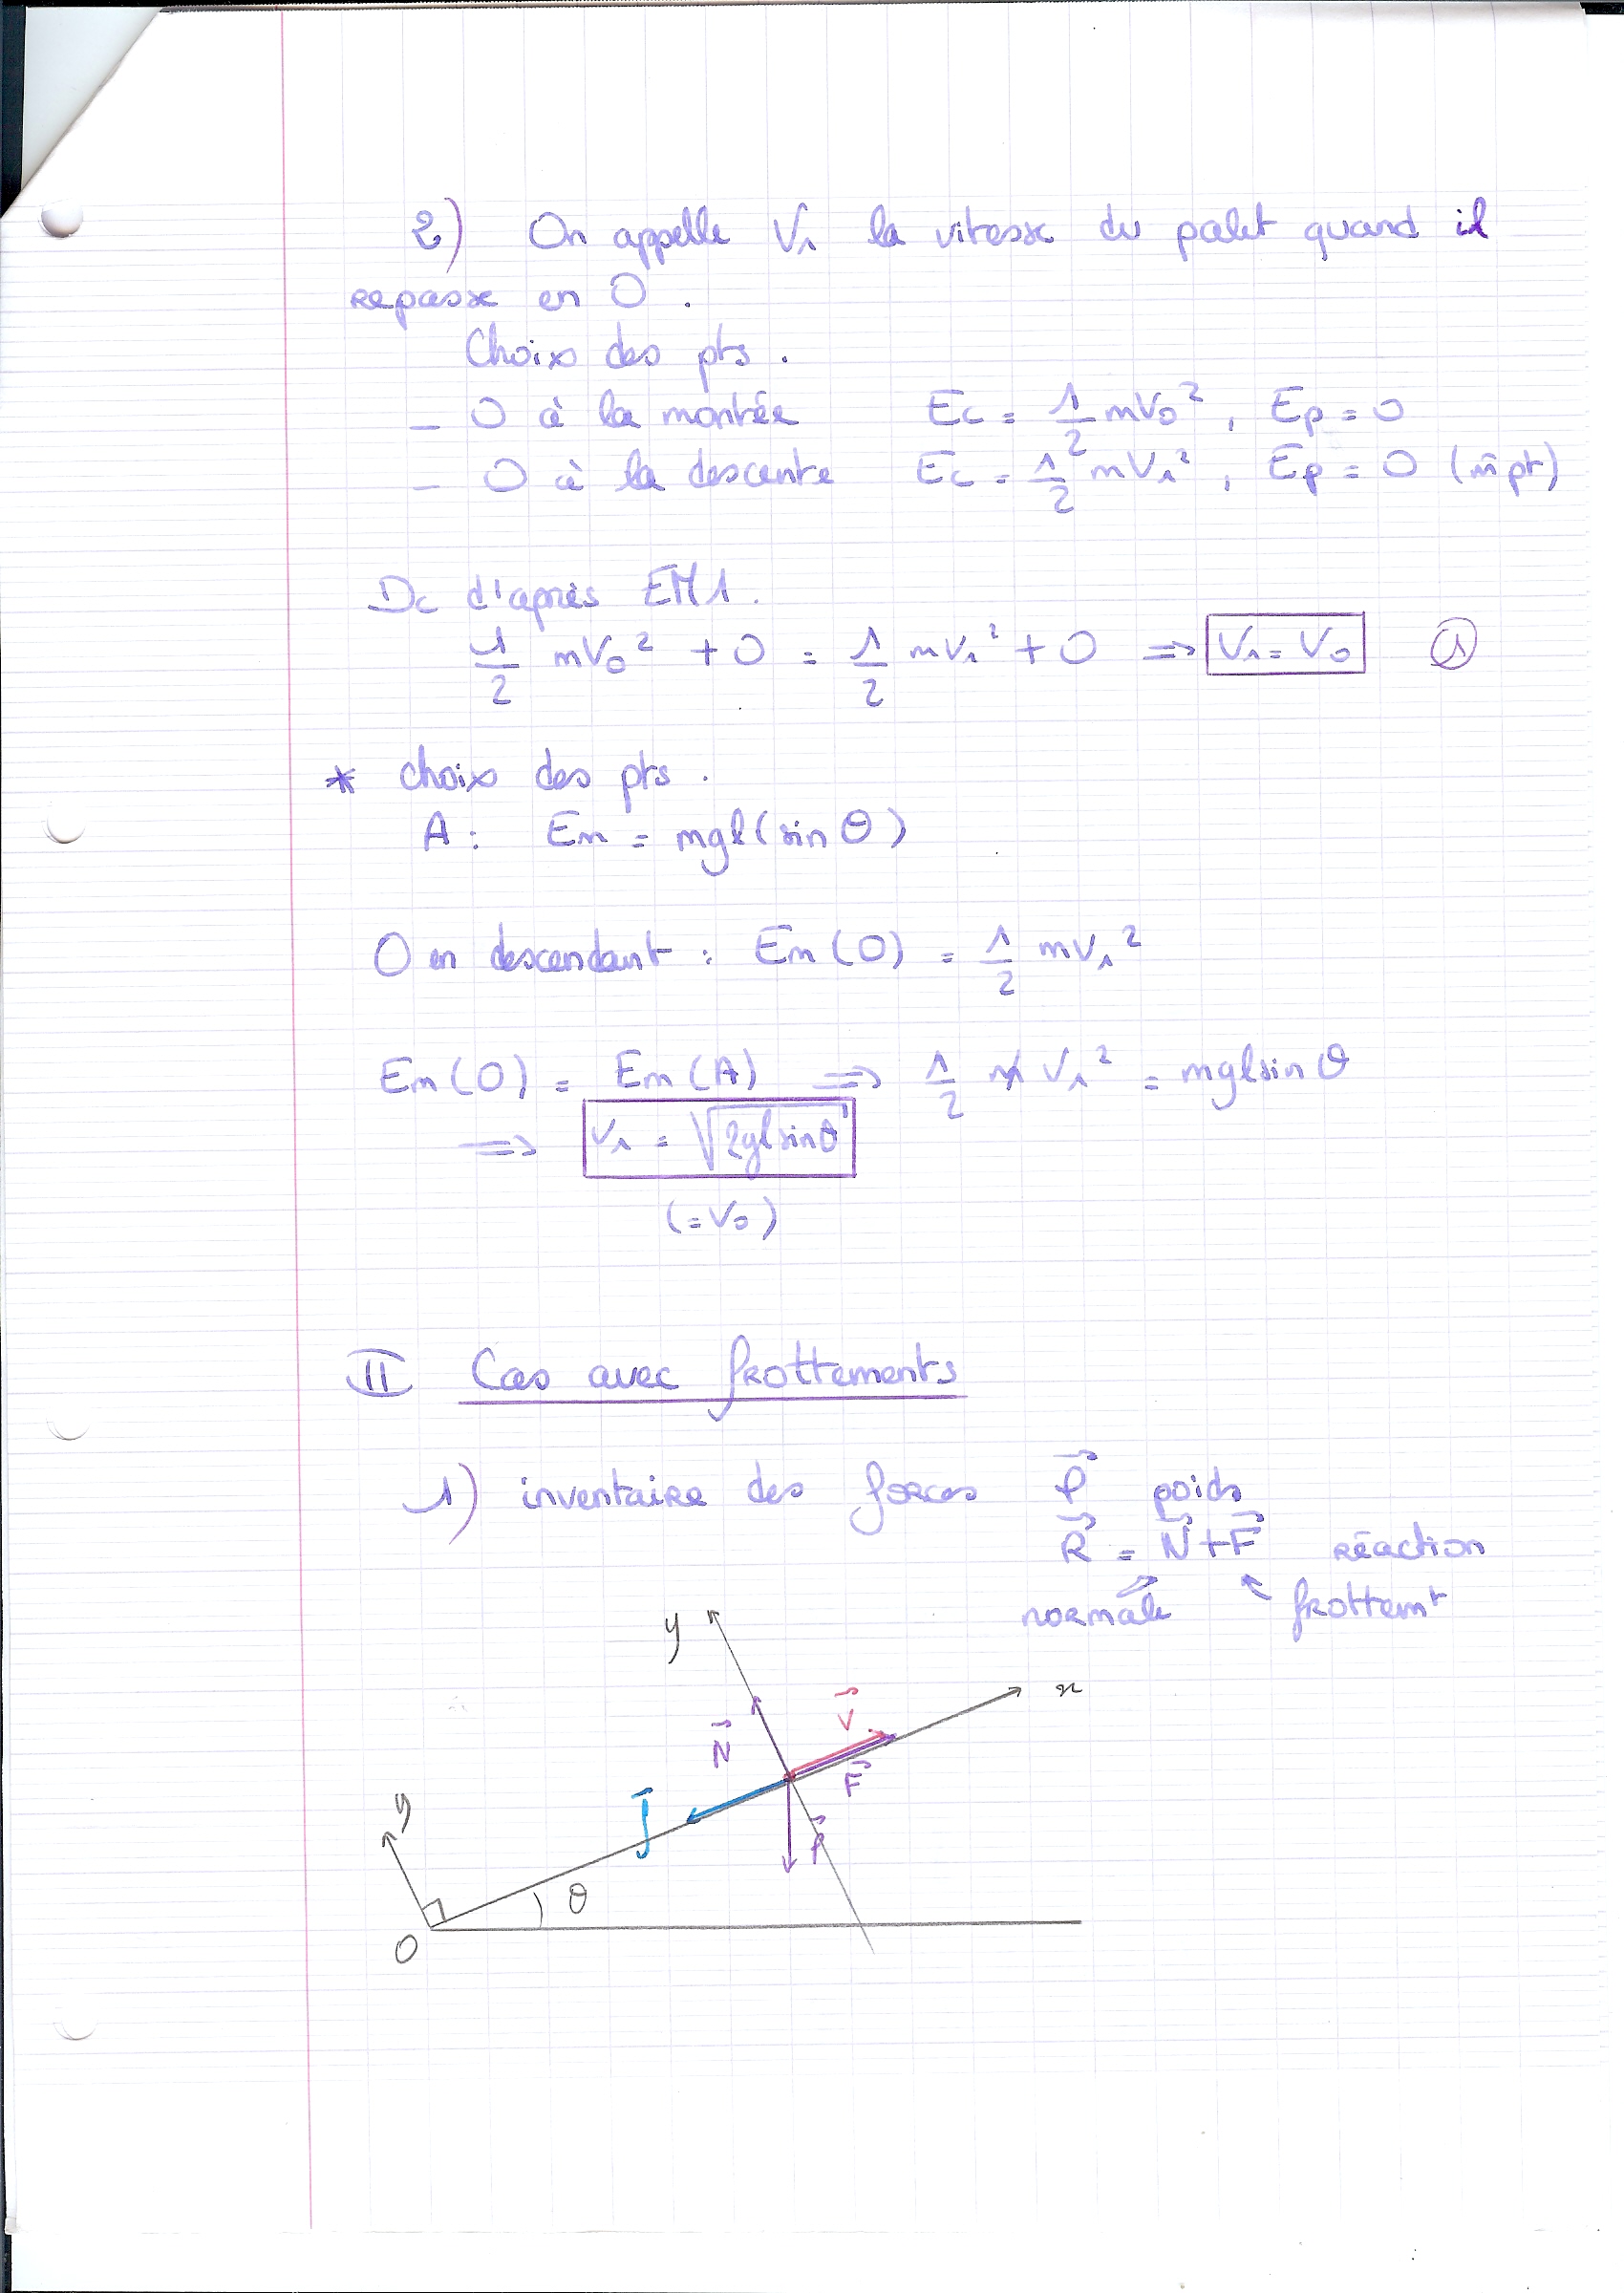 2) On appelle V₁ la vitesse du palet quand il
repasse en O .
Choix des pts .
– O à la montée Ec = 1/2 mV₀² , Ep = 0
– O à la descente Ec = 1/2 mV₁² , Ep = 0 (m̄ pt)
Dc d'après EM1.
1/2 mV₀² + 0 = 1/2 mV₁² + 0 ⟹ V₁ = V₀ ①
* choix des pts .
A : Em = mgl(sin θ)
O en descendant : Em(O) = 1/2 mV₁²
Em(O) = Em(A) ⟹ 1/2 m V₁² = mglsin θ
⟹ V₁ = √2glsinθ
(=V₀)
II Cas avec frottements
1) inventaire des forces P⃗ poids
R⃗ = N⃗+F⃗ réaction
normale frottemt
y
x
N⃗
V⃗
F⃗
f⃗
P⃗
y
θ
O